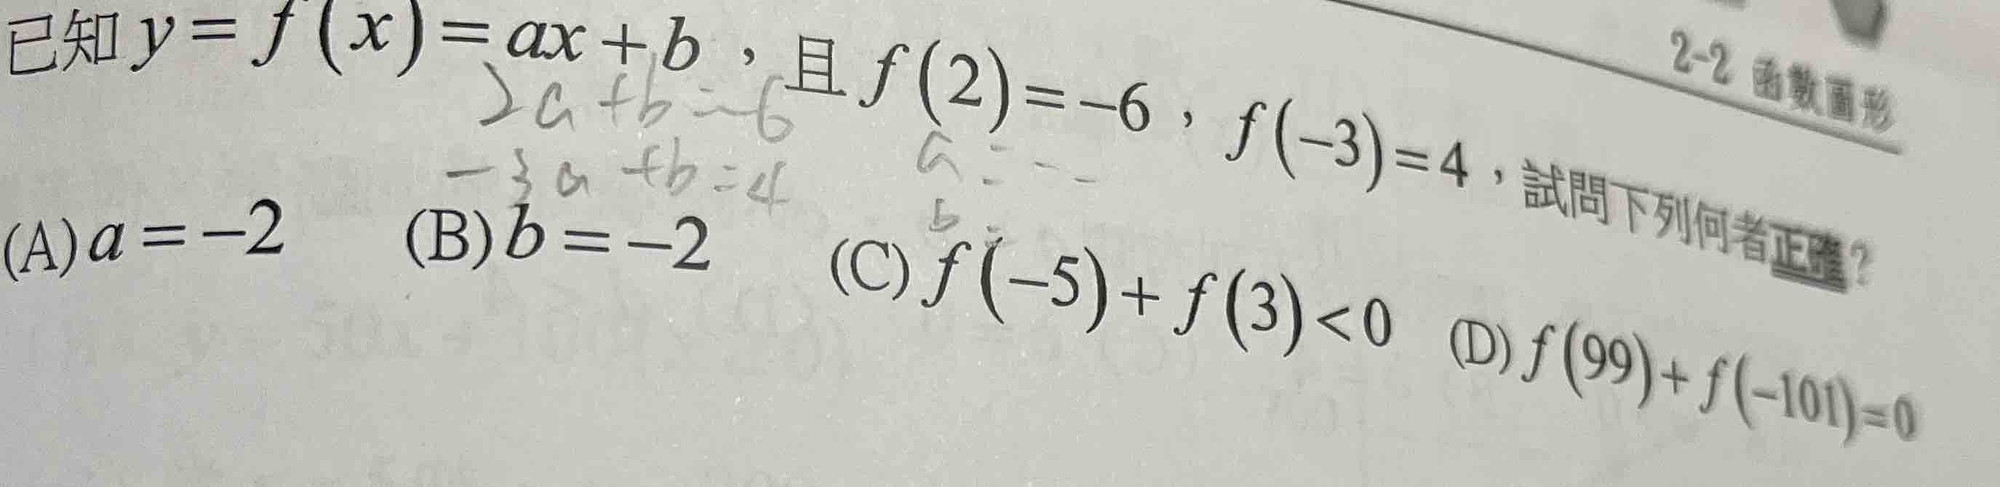 2-2 函數圖形
已知 y = f(x) = ax + b，且 f(2) = -6，f(-3) = 4，試問下列何者正確？
2a + b = -6
-3a + b = 4
a = --
b =
(A) a = -2 (B) b = -2 (C) f(-5) + f(3) < 0 (D) f(99) + f(-101) = 0